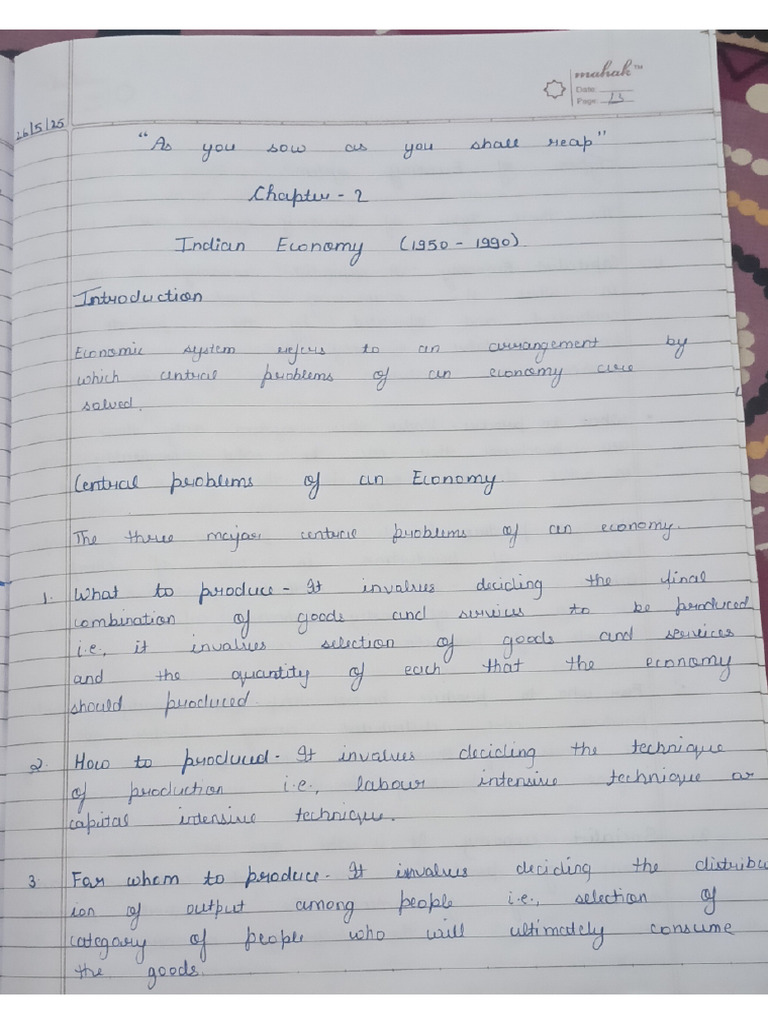 mahak™
Date:
Page: 13
26/5/25
"As you sow as you shall reap"
Chapter - 2
Indian Economy (1950 - 1990)
Introduction
Economic system refers to an arrangement by
which central problems of an economy are
solved.
Central problems of an Economy
The three major central problems of an economy.
1. What to produce - It involves deciding the final
combination of goods and services to be produced
i.e., it involves selection of goods and services
and the quantity of each that the economy
should produced.
2. How to produced - It involves deciding the technique
of production i.e., labour intensive technique or
capital intensive technique.
3. For whom to produce - It involves deciding the distribu
ion of output among people i.e., selection of
category of people who will ultimately consume
the goods.